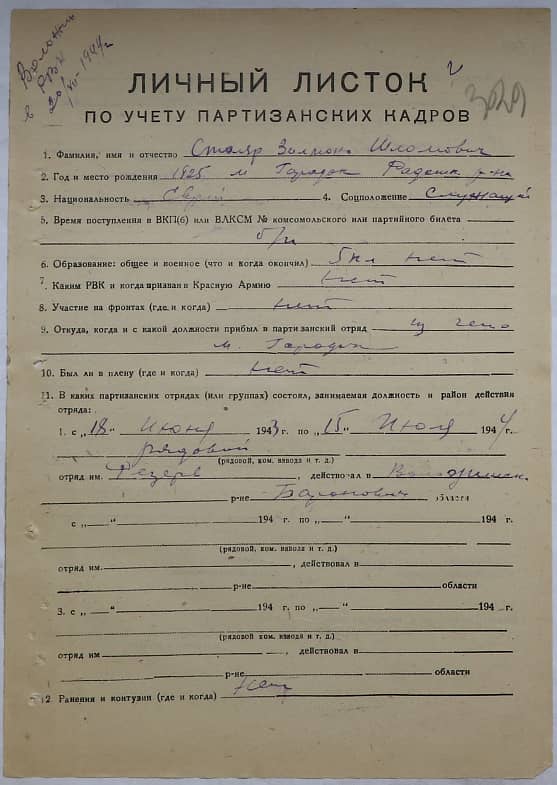 Воложин
в РВК
20/VII-1944г
г
3029
ЛИЧНЫЙ ЛИСТОК
ПО УЧЕТУ ПАРТИЗАНСКИХ КАДРОВ
1. Фамилия, имя и отчество Столяр Залмон Шломович
2. Год и место рождения 1925 м Городок Радошк р-на
3. Национальность Еврей 4. Соцположение Служащий
5. Время поступления в ВКП(б) или ВЛКСМ № комсомольского или партийного билета
б/п
6. Образование: общее и военное (что и когда окончил) 5 кл нет
7. Каким РВК и когда призван в Красную Армию нет
8. Участие на фронтах (где и когда) нет
9. Откуда, когда и с какой должности прибыл в партизанский отряд из
м. Городок
10. Был ли в плену (где и когда) нет
11. В каких партизанских отрядах (или группах) состоял, занимаемая должность и район действия
отряда:
1. с „18" Июня 1943 г. по „15" Июля 1944 г.
рядовой
(рядовой, ком. взвода и т. д.)
отряд им. , действовал в Воложинск.
р-не Баранович области
с „ " 194 г. по „ " 194 г.
(рядовой, ком. взвода и т. д.)
отряд им. , действовал в
р-не области
3. с „ " 194 г. по „ " 194 г.
(рядовой, ком. взвода и т. д.)
отряд им , действовал в
р-не области
12. Ранения и контузии (где и когда) нет